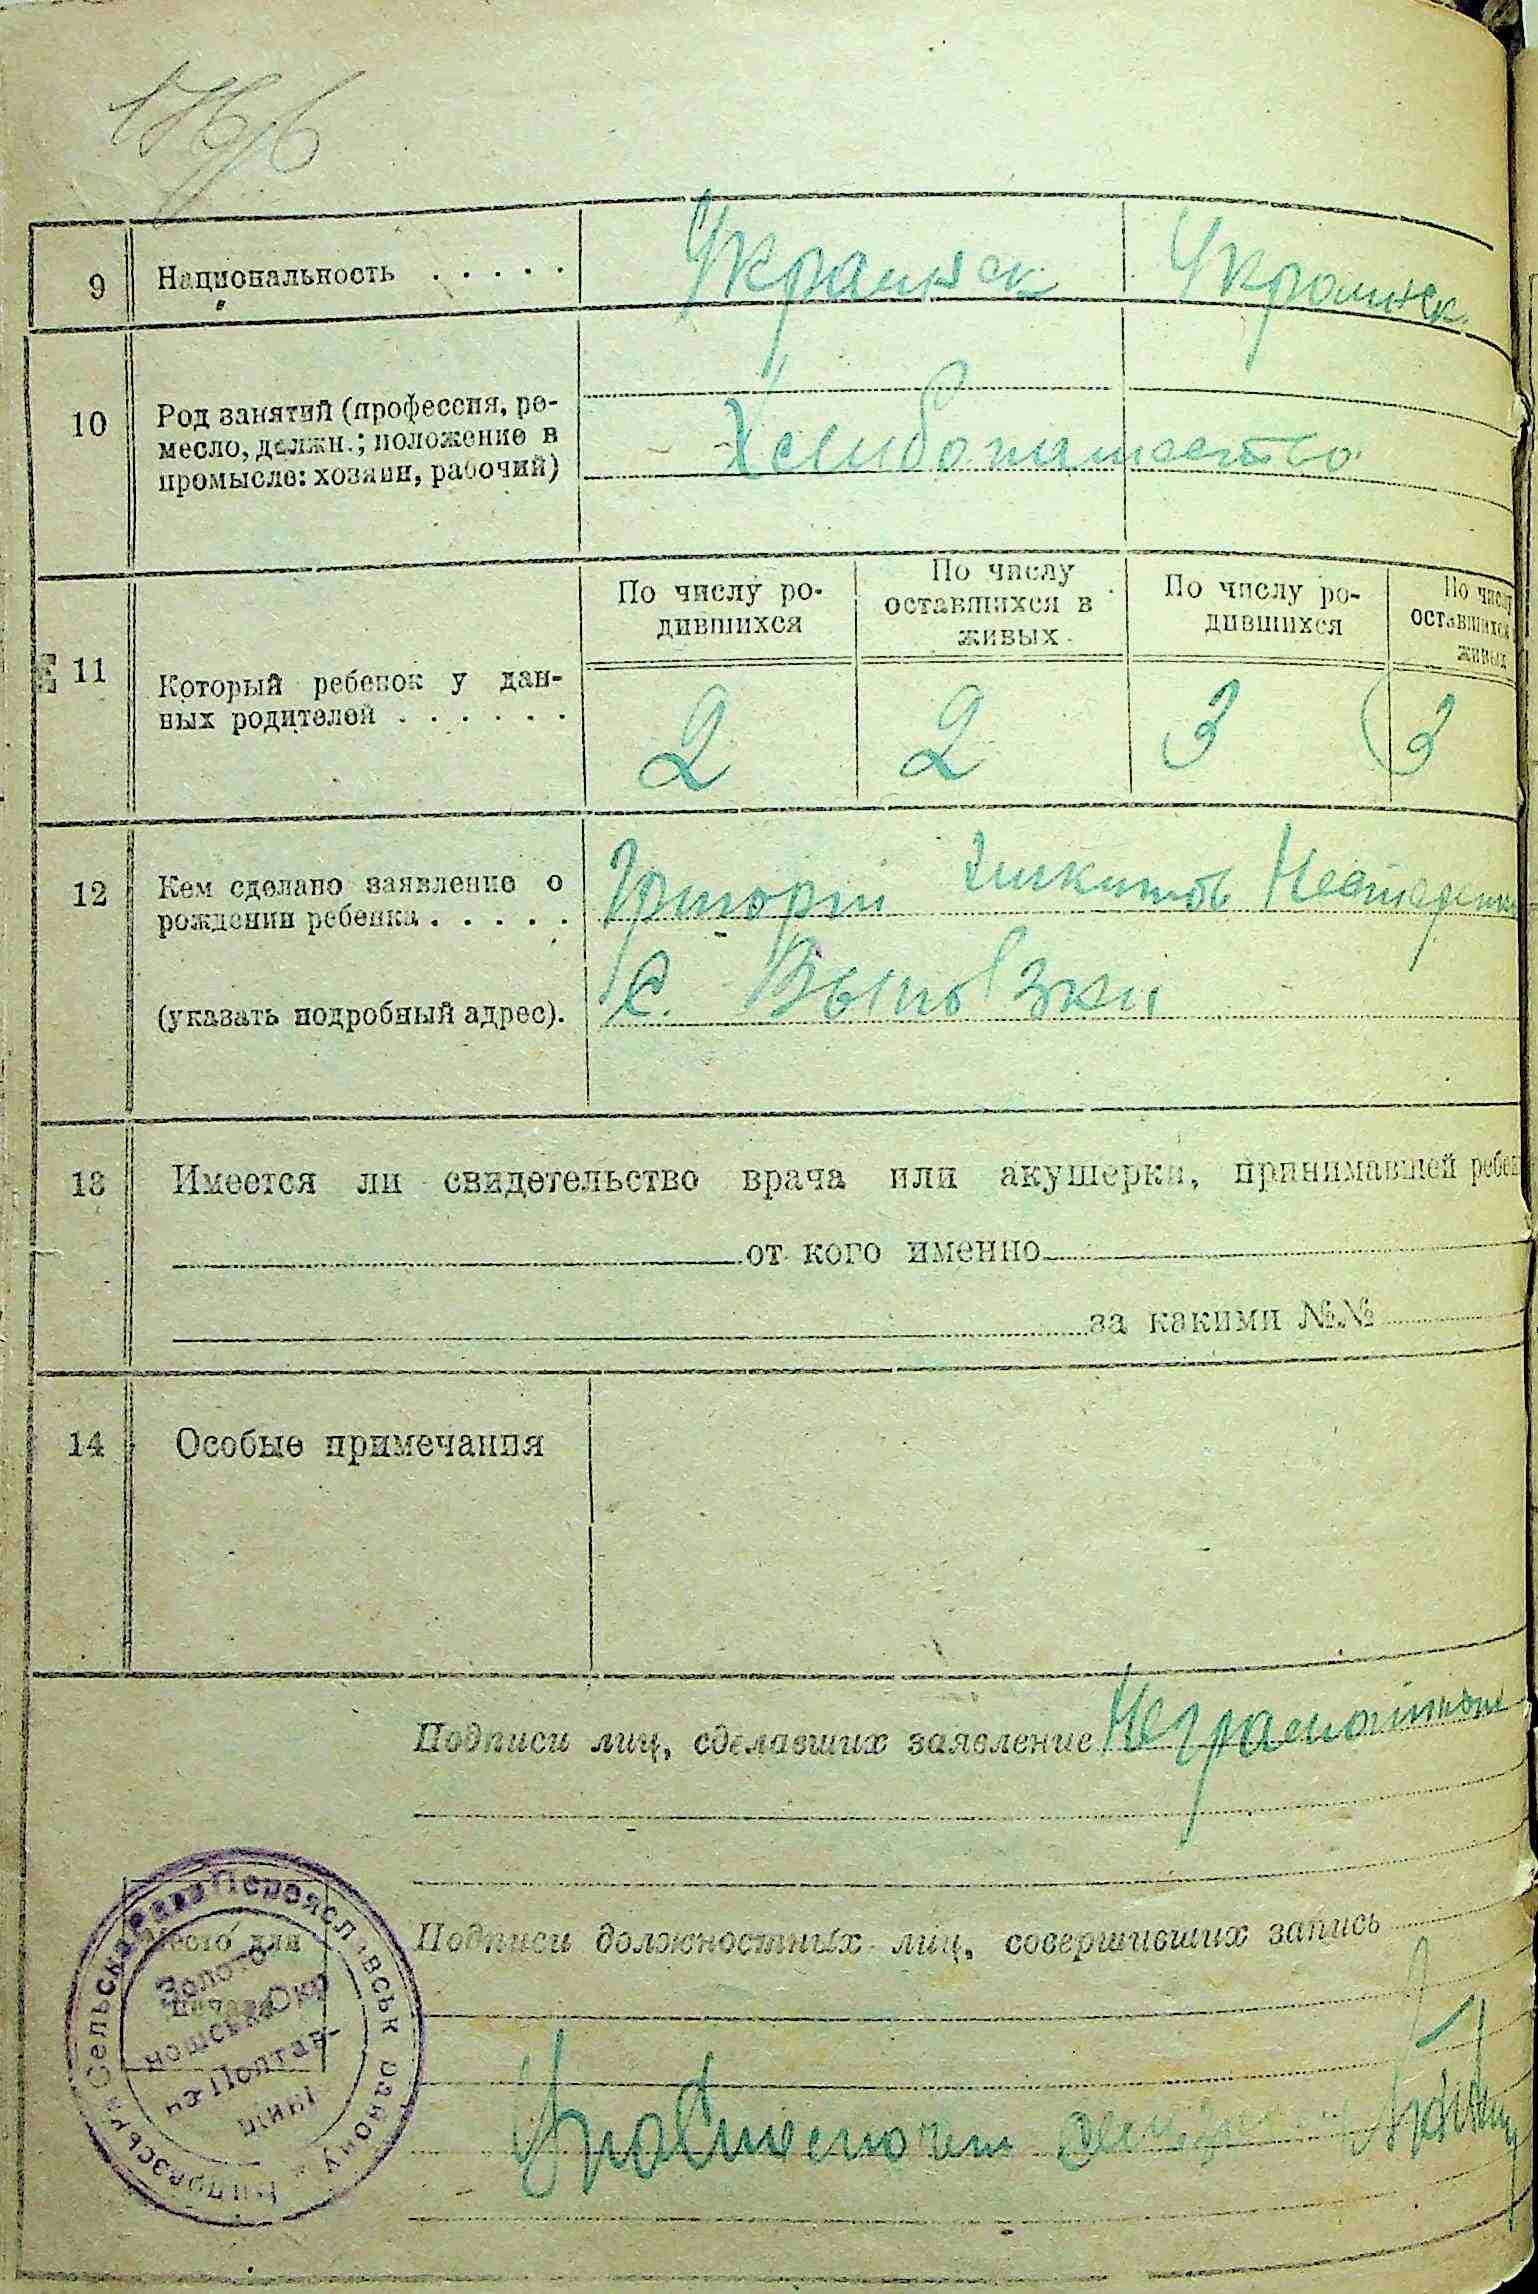 9 Национальность . . . . . Украинск Украинск.
10 Род занятий (профессия, ре-
месло, должн.; положение в
промысле: хозяин, рабочий)
11 Который ребенок у дан-
ных родителей . . . . . .
По числу ро-
дившихся
По числу
оставшихся в
живых
По числу ро-
дившихся
По числу
оставшихся
живых
2 2 3 3
12 Кем сделано заявление о
рождении ребенка . . . . .
(указать подробный адрес).
с. Выповзки
13 Имеется ли свидетельство врача или акушерки, принимавшей ребен
от кого именно
за какими №№
14 Особые примечания
Подписи лиц, сделавших заявление
Подписи должностных лиц, совершивших запись
Место для
печати
Сельська Рада Переяславськ району
Золото-
ношська Окр
на Полтав-
щині